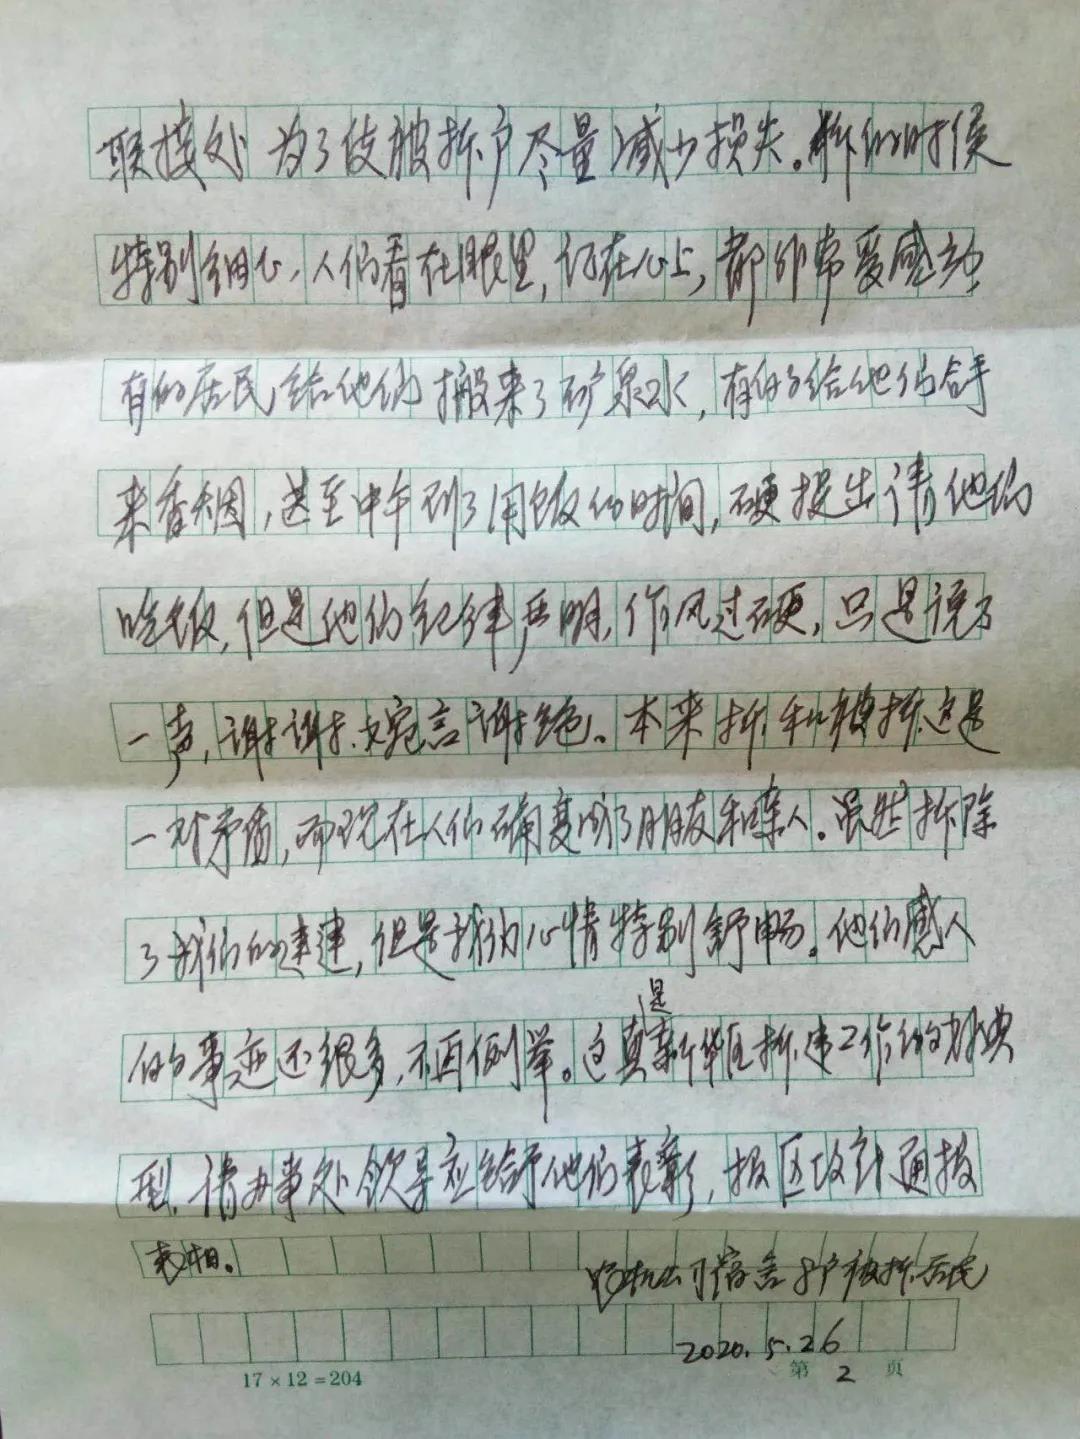 联接处 为了使被拆户尽量减少损失。拆的时侯
特别细心、人们看在眼里,记在心上,都非常受感动
有的居民给他们搬来了矿泉水,有的给他们拿
来香烟,甚至中午到了用饭的时间,硬提出请他们
吃饭,但是他们纪律严明,作风过硬,只是说了
一声,谢谢、婉言谢绝。本来拆和被拆这是
一对矛盾,而现在人们确变成了朋友和亲人。虽然拆除
了我们的违建,但是我们心情特别舒畅。他们感人
的事迹还很多,不再例举。这真是新华区拆违工作的典
型、请办事处领导应给于他们表彰,报区政府通报
表扬。
公司宿舍 户被拆居民
2020.5.26
17×12=204
第 2 页